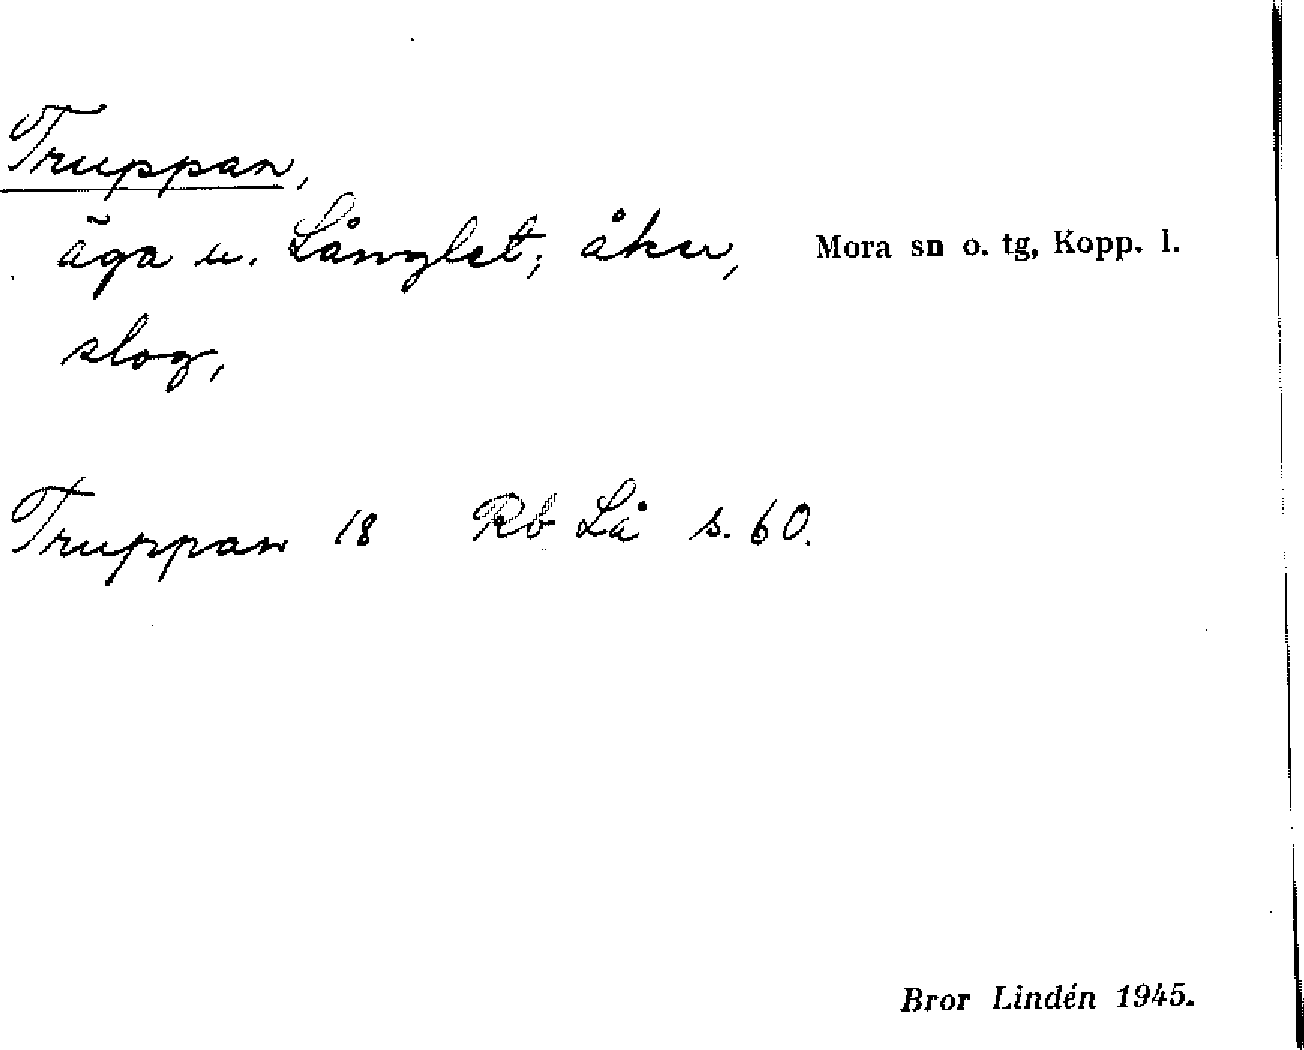 Truppan,
äga u. Långlet; åker, Mora sn o. tg, Kopp. l.
slog,
Truppan 18 Rb Lå s. 60.
Bror Lindén 1945.